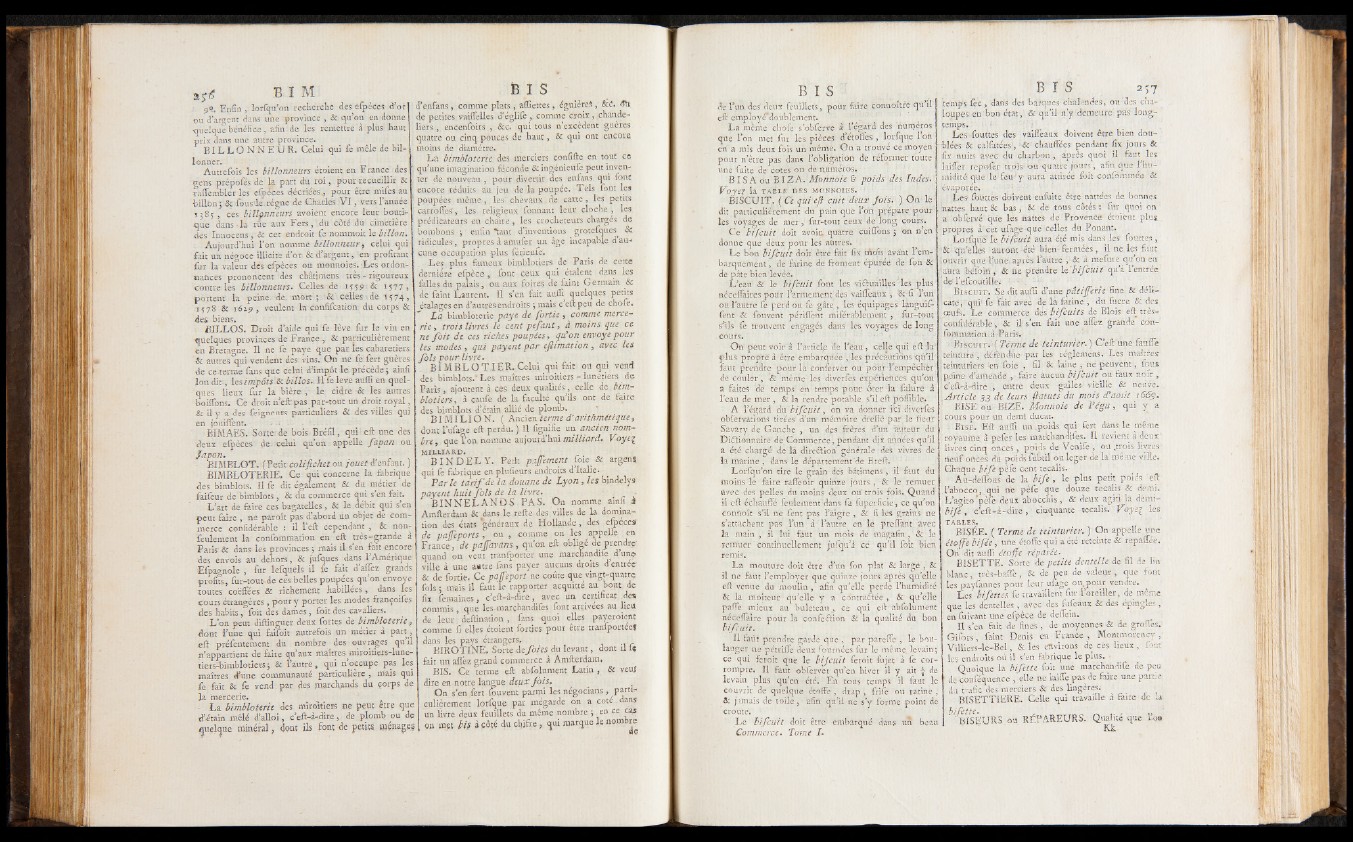 256 B I M
9°. Enfin, lorsqu'on recherche des espèces d'or
ou d'argent dans une province, & qu'on en donne
quelque bénéfice, afin de les remettre à plus haut
prix dans une autre province.
BILLONNEUR. Celui qui se mêle de bil-
lonner.
Autrefois les billonneurs étoient en France des
gens préposés de la part du roi, pour recueillir &
rassembler les espèces décriées, pour être mises au
billon; & sous le règne de Charles VI, vers l'année
1385, ces billonneurs avoient encore leur bouti-
que dans la rue aux Fers, du côté du cimetière
des Innocens, & cet endroit se nommoit le billon.
Aujourd'hui l'on nomme billonneur, celui qui
fait un négoce illicite d'or & d'argent, en profitant
sur la valeur des espèces ou monnoies. Les ordon-
nances prononcent des châtimens très-rigoureux
contre les billonneurs. Celles de 1559 & 1577,
portent la peine de mort; & celles de 1574,
1578 & 1629, veulent la confiscation du corps &
des biens.
BILLOS. Droit d'aide qui se lève sur le vin en
quelques provinces de France, & particulièrement
en Bretagne. Il ne se paye que par les cabaretiers
& autres qui vendent des vins. On ne se sert guères
de ce terme sans que celui d'impôt le précède; ainsi
l'on dit, les impôts & billos. Il se lève aussi en quel-
ques lieux sur la bière, le cidre & les autres
boissons. Ce droit n'est pas par-tout un droit royal,
& il y a des seigneurs particuliers & des villes qui
en jouissent.
BIMAES. Sorte de bois Brésil, qui est une des
deux espèces de celui qu'on appelle sapan ou
Japan.
BIMBLOT. (Petit colifichet ou jouet d'enfant.)
BIMBLOTERIE. Ce qui concerne la fabrique
des bimblots. Il se dit également & du métier de
faiseur de bimblots, & du commerce qui s'en fait.
L'art de faire ces bagatelles, & le débit qui s'en
peut faire, ne paroît pas d'abord un objet de com-
merce considérable : il l'est cependant, & non-
seulement la consommation en est très-grande à
Paris & dans les provinces; mais il s'en fait encore
des envois au dehors, & jusques dans l'Amérique
Espagnole, sur lesquels il se fait d'assez grands
profits, sur-tout de ces belles poupées qu'on envoye
toutes coëffées & richement habillées, dans les
cours étrangères, pour y porter les modes françoises
des habits, soit des dames, soit des cavaliers.
L'on peut distinguer deux sortes de bimbloterie,
dont l'une qui faisoit autrefois un métier à part,
est présentement du nombre des ouvrages qu'il
n'appartient de faire qu'aux maîtres miroitiers-lune-
tiers-bimblotiers; & l'autre, qui n'occupe pas les
maîtres d'une communauté particulière, mais qui
se fait & se vend par des marchands du corps de
la mercerie.
La bimbloterie des miroitiers ne peut être que
d'étain mêlé d'alloi, c'est-à-dire, de plomb ou de
quelque minéral, dont ils font de petits ménages
B I S
d'enfans, comme plats, assiettes, éguières, &c. ou
de petites vaisselles d'église, comme croix, chande-
liers, encensoirs, &c. qui tous n'excèdent guères
quatre ou cinq pouces de haut, & qui ont encore
moins de diamètre.
La bimbloterie des merciers consiste en tout ce
qu'une imagination féconde & ingénieuse peut inven-
ter de nouveau, pour divertir des enfans qui sont
encore réduits au jeu de la poupée. Tels sont les
poupées même, les chevaux de carte, les petits
carrosses, les religieux sonnant leur cloche, les
prédicateurs en chaire, les crocheteurs chargés de
bombons; enfin tant d'inventions grotesques &
ridicules, propres à amuser un âge incapable d'au-
cune occupation plus sérieuse.
Les plus fameux bimblotiers de Paris de cette
dernière espèce, sont ceux qui étalent dans les
salles du palais, ou aux foires de saint Germain &
de saint Laurent. Il s'en fait aussi quelques petits
étalages en d'autres endroits; mais c'est peu de chose.
La bimbloterie paye de sortie, comme merce-
rie, trois livres le cent pesant, à moins que ce
ne soit de ces riches poupées, qu'on envoye pour
les modes, qui payent par estimation, avec les
sols pour livre.
BIMBLOTIER. Celui qui fait ou qui vend
des bimblots. Les maîtres miroitiers-lunetiers de
Paris, ajoutent à ces deux qualités, celle de bim-
blotiers, à cause de la faculté qu'ils ont de faire
des bimblots d'étain allié de plomb.
BIMILION. (Ancien terme d'arithmétique,
dont l'usage est perdu.) Il signifie un ancien nom-
bre, que l'on nomme aujourd'hui milliard. Voyez
MILLIARD.
BINDELY. Petit passement soie & argent
qui se fabrique en plusieurs endroits d'Italie.
Par le tarif de la douane de Lyon, les bindelys
payent huit sols de la livre.
BINNELANDS PAS. On nomme ainsi à
Amsterdam & dans le reste des villes de la domina-
tion des états généraux de Hollande, des espèces
de passeports, ou, comme on les appelle en
France, de passavans, qu'on est obligé de prendre
quand on veut transporter une marchandise d'une
ville à une autre sans payer aucuns droits d'entrée
& de sortie. Ce passeport ne coûte que vingt-quatre
sols; mais il faut le rapporter acquitté au bout de
six semaines, c'est-à-dire, avec un certificat des
commis, que les marchandises sont arrivées au lieu
de leur destination, sans quoi elles payeroient
comme si elles étoient sorties pour être transportées
dans les pays étrangers.
BIROTINE. Sorte de soies du levant, dont il se
fait un assez grand commerce à Amsterdam.
BIS. Ce terme est absolument Latin, & veut
dire en notre langue deux fois.
On s'en sert souvent parmi les négocians, parti-
culièrement lorsque par mégarde on a coté dans
un livre deux feuillets du même nombre; en ce cas
on met bis à côté du chifre, qui marque le nombre
de
B I S
de l'un des deux feuillets, pour faire connoître qu'il
est employé doublement.
La même chose s'observe à l'égard des numéros
que l'on met sur les pièces d'étoffes, lorsque l'on
en a mis deux fois un même. On a trouvé ce moyen
pour n'être pas dans l'obligation de réformer toute
une suite de cotes ou de numéros.
BISA ou BIZA. Monnoie & poids des Indes.
Voyez la TABLE DES MONNOIES.
BISCUIT. (Ce qui est cuit deux fois.) On le
dit particulièrement du pain que l'on prépare pour
les voyages de mer, sur-tout ceux de long cours.
Ce biscuit doit avoir quatre cuissons; on n'en
donne que deux pour les autres.
Le bon biscuit doit être fait six mois avant l'em-
barquement, de farine de froment épurée de son &
de pâte bien levée.
L'eau & le biscuit sont les victuailles les plus
nécessaires pour l'armement des vaisseaux, & si l'un
ou l'autre se perd ou se gâte, les équipages languis-
sent & souvent périssent misérablement, sur-tout
s'ils se trouvent engagés dans les voyages de long
cours.
On peut voir à l'article de l'eau, celle qui est la
plus propre à être embarquée, les précautions qu'il
faut prendre pour la conserver ou pour l'empêcher
de couler, & même les diverses expériences qu'on
a faites de temps en temps pour ôter la salure à
l'eau de mer, & la rendre potable s'il est possible.
A l'égard du biscuit, on va donner ici diverses
observations tirées d'un mémoire dressé par le sieur
Savary de Ganche, un des frères d'un auteur du
Dictionnaire de Commerce, pendant dix années qu'il
a été chargé de la direction générale des vivres de
la marine, dans le département de Brest.
Lorsqu'on tire le grain des bâtimens, il faut du
moins le faire rasseoir quinze jours, & le remuer
avec des pelles du moins deux ou trois fois. Quand
il est échauffé seulement dans sa superficie, ce qu'on
connoît s'il ne sent pas l'aigre, & si les grains ne
s'attachent pas l'un à l'autre en le pressant avec
la main, il lui faut un mois de magasin, & le
remuer continuellement jusqu'à ce qu'il soit bien
remis.
La mouture doit être d'un son plat & large, &
il ne faut l'employer que quinze jours après qu'elle
est venue du moulin, afin qu'elle perde l'humidité
& la moiteur qu'elle y a contractée, & qu'elle
passe mieux au buleteau, ce qui est absolument
nécessaire pour la confection & la qualité du bon
biscuit.
Il faut prendre garde que, par paresse, le bou-
langer ne pétrisse deux fournées sur le même levain;
ce qui feroit que le biscuit seroit sujet à se cor-
rompre. Il faut observer qu'en hiver il y ait du
levain plus qu'en été. En tous temps il faut le
couvrir de quelque étoffe, drap, frise ou ratine,
& jamais de toile, afin qu'il ne s'y forme point de
croute.
Le biscuit doit être embarqué dans un beau
Commerce. Tome I.
B I S 257
temps sec, dans des barques chalandes, ou des cha-
loupes en bon état, & qu'il n'y demeure pas long-
temps.
Les souttes des vaisseaux doivent être bien dou-
blées & calfatées, & chauffées pendant six jours &
six nuits avec du charbon, après quoi il faut les
laisser reposer trois ou quatre jours, afin que l'hu-
midité que le feu y aura attirée soit consommée &
évaporée.
Les souttes doivent ensuite être nattées de bonnes
nattes haut & bas, & de tous côtés: sur quoi on
a observé que les nattes de Provence étoient plus
propres à cet usage que celles du Ponant.
Lorsque le biscuit aura été mis dans les souttes,
& qu'elles auront été bien fermées, il ne les faut
ouvrir que l'une après l'autre, & à mesure qu'on en
aura besoin, & ne prendre le biscuit qu'à l'entrée
de l'escoutille.
BISCUIT. Se dit aussi d'une pâtisserie fine & déli-
cate, qui se fait avec de la farine, du sucre & des
œufs. Le commerce des biscuits de Blois est très-
considérable, & il s'en fait une assez grande con-
sommation à Paris.
BISCUIT. (Terme de teinturier.) C'est une fausse
teinture, défendue par les réglemens. Les maîtres
teinturiers en soie, fil & laine, ne peuvent, sous
peine d'amende, faire aucun biscuit ou faux noir,
c'est-à-dire, entre deux galles vieille & neuve.
Article 33 de leurs statuts du mois d'août 1669.
BISE ou BIZE. Monnoie de Pégu, qui y a
cours pour un demi ducat.
BISE. Est aussi un poids qui sert dans le même
royaume à peser les marchandises. Il revient à deux
livres cinq onces, poids de Venise, ou trois livres
neuf onces du poids subtil ou léger de la même ville.
Chaque bise pèse cent tecalis.
Au-dessous de la bise, le plus petit poids est
l'abocco, qui ne pèse que douze tecalis & demi.
L'agito pèse deux abocchis, & deux agiti la demi-
bise, c'est-à-dire, cinquante tecalis. Voyez les
TABLES.
BISÉE. (Terme de teinturier.) On appelle une
étoffe bisée, une étoffe qui a été reteinte & repassée.
On dit aussi étoffe réparée.
BISETTE. Sorte de petite dentelle de fil de lin
blanc, très-basse, & de peu de valeur, que font
les paysannes pour leur usage ou pour vendre.
Les bisettes se travaillent sur l'oreiller, de même
que les dentelles, avec des fuseaux & des épingles,
en suivant une espèce de dessein.
Il s'en fait de fines, de moyennes & de grosses.
Gisors, saint Denis en France, Montmorency,
Villiers-le-Bel, & les environs de ces lieux, sont
les endroits où il s'en fabrique le plus.
Quoique la bisette soit une marchandise de peu
de conséquence, elle ne laisse pas de faire une partie
du trafic des merciers & des lingères.
BISETTIERE. Celle qui travaille à faire de la
bisette.
BISEURS ou RÉPAREURS. Qualité que l'on
Kk